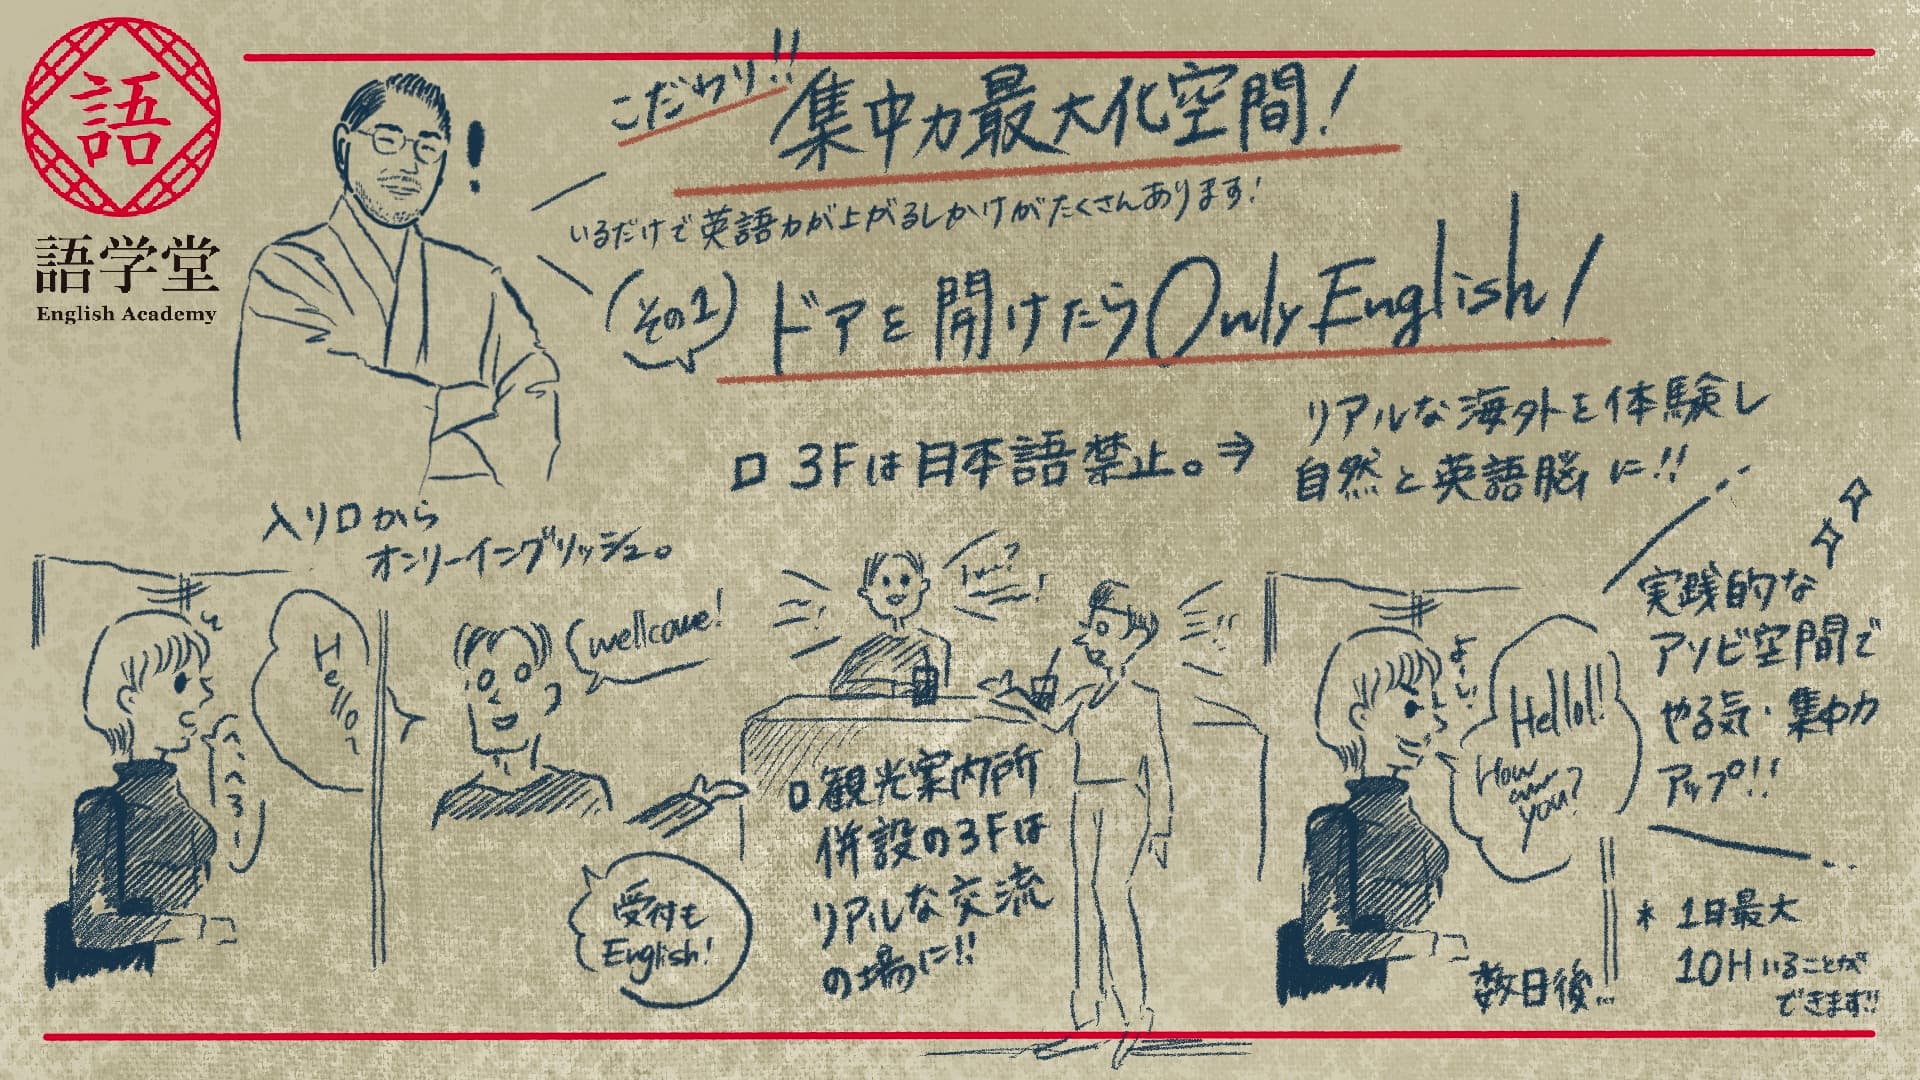 語
語学堂
English Academy
こだわり!!
集中力最大化空間!
いるだけで英語力が上がるしかけがたくさんあります!
(その1)
ドアを開けたらOnly English!
□ 3Fは日本語禁止。⇒
リアルな海外を体験し
自然と英語脳に!!
入り口から
オンリーイングリッシュ。
Hello~
へ、へろー
wellcome!
受付も
English!
□観光案内所
併設の3Fは
リアルな交流
の場に!!
よーい
Hello!!
How
are
you?
数日後...
実践的な
アソビ空間で
やる気・集中力
アップ!!
* 1日最大
10Hいることが
できます!!